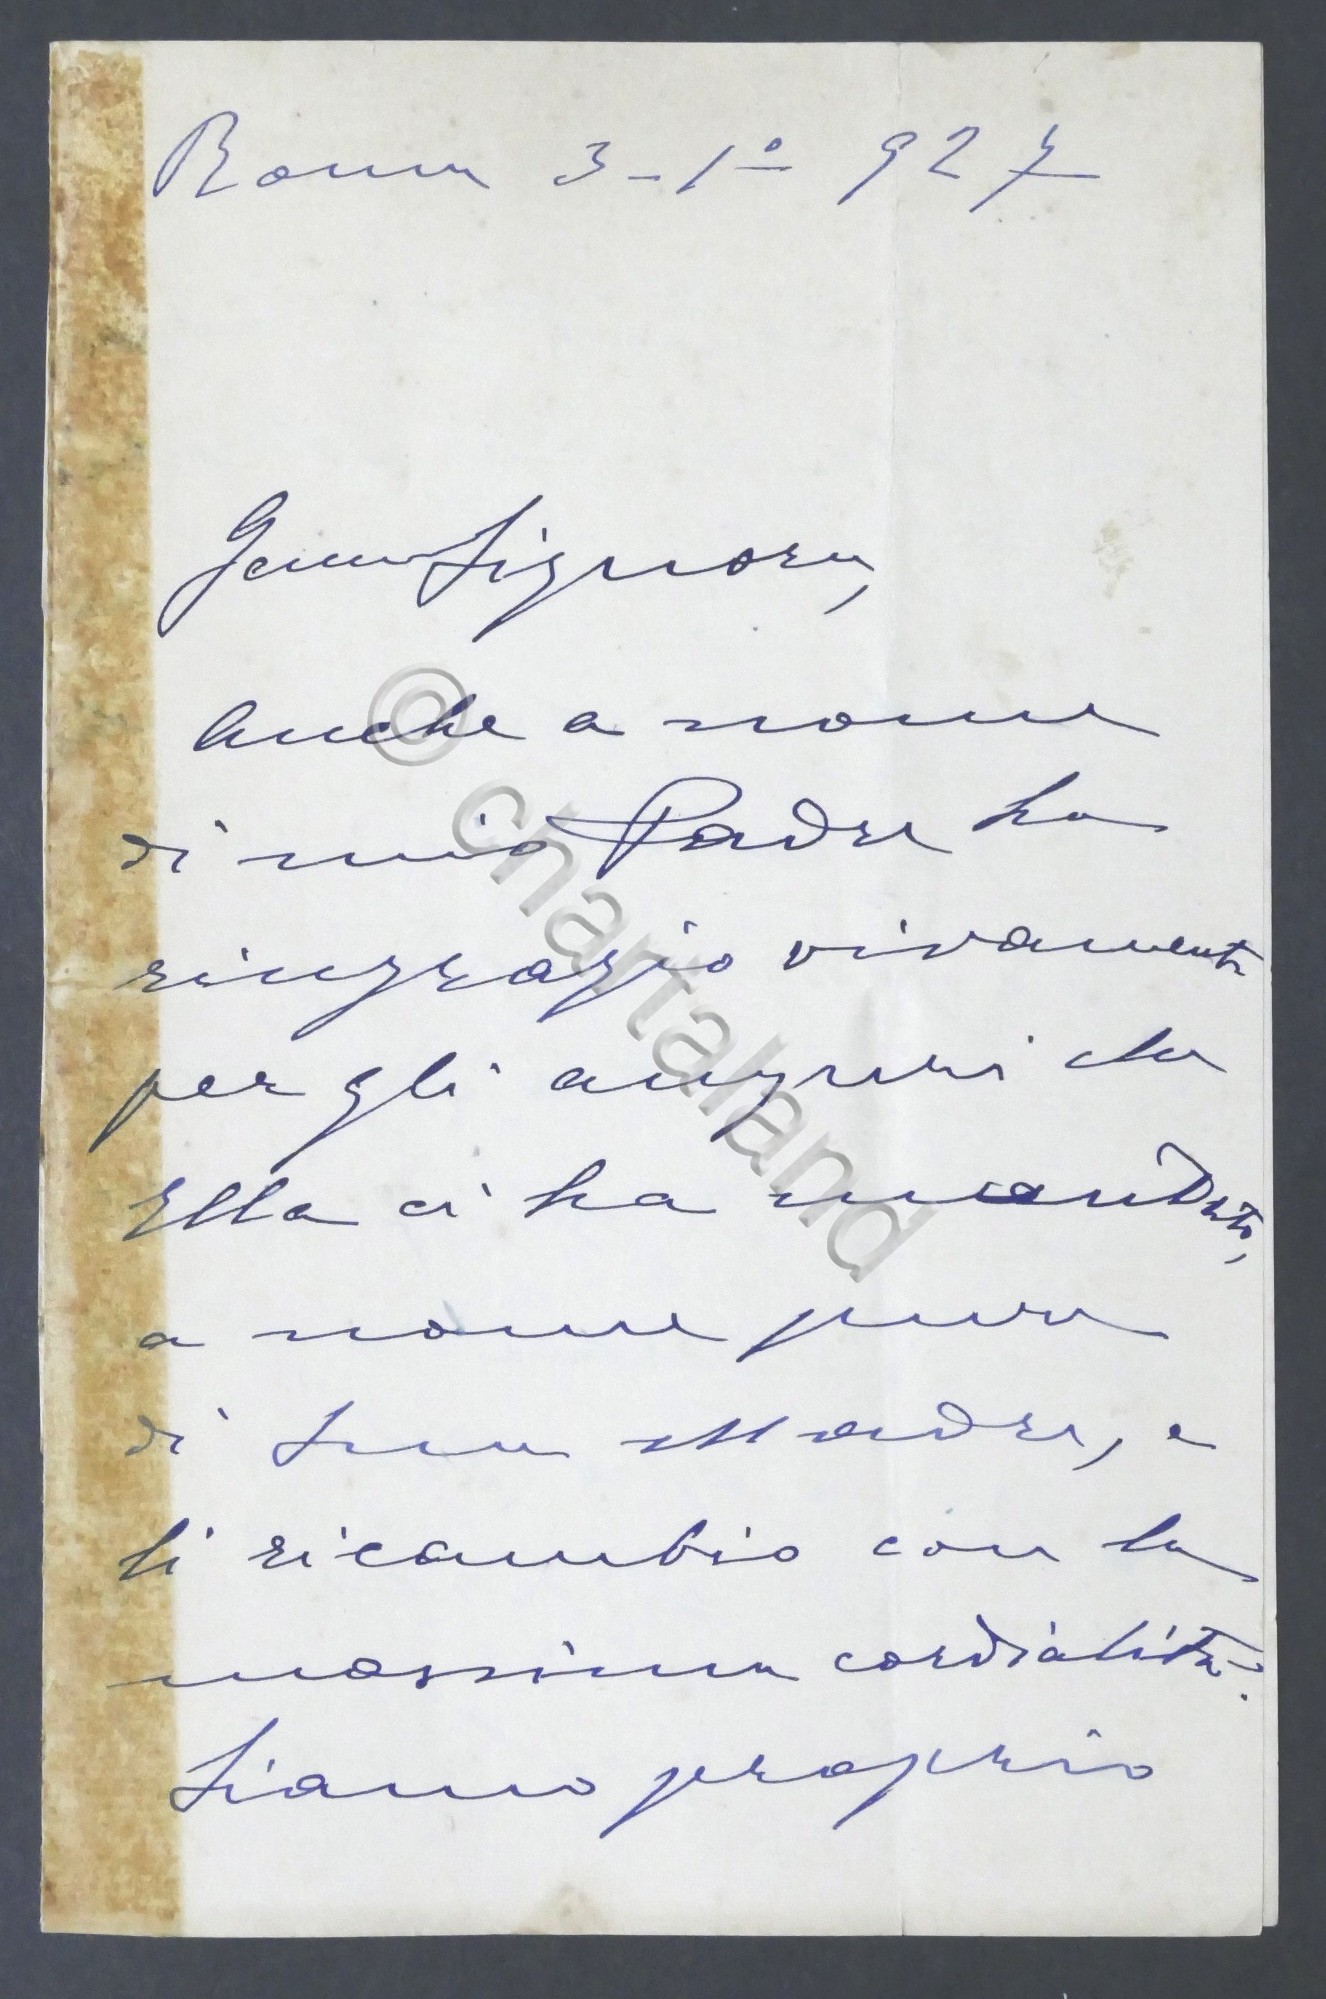 Roma 3-1º 927
Gen.ma Signora,
Anche a nome
di mio Padre La
ringrazio vivamente
per gli auguri che
Ella ci ha mandato,
a nome pure
di Sua Madre, e
li ricambio con la
massima cordialità.
Siamo proprio
© chartaland